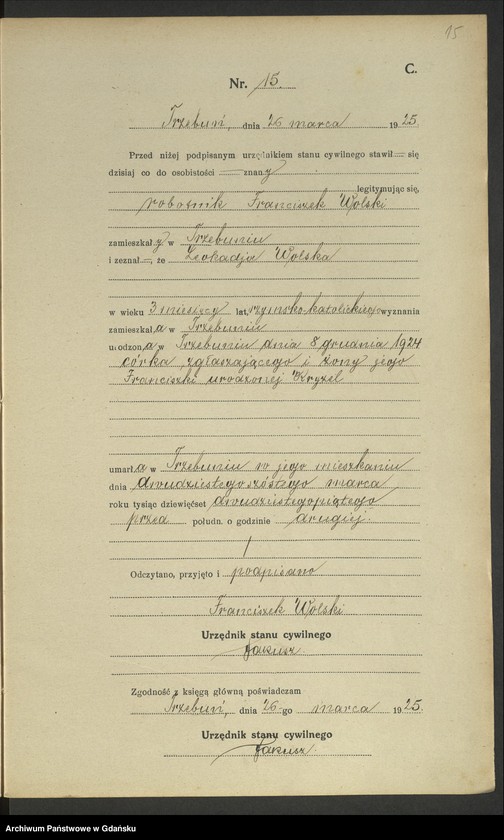 15
C.
Nr. 15.
Trzebuń, dnia 26 marca 1925.
Przed niżej podpisanym urzędnikiem stanu cywilnego stawił się
dzisiaj co do osobistości znany
legitymując się,
robotnik Franciszek Wolski
zamieszkały w Trzebuniu
i zeznał, że Leokadja Wolska
w wieku 3 miesięcy lat, rzymsko-katolickiego wyznania
zamieszkała w Trzebuniu
urodzona w Trzebuniu dnia 8 grudnia 1924
córka zgłaszającego i żony jego
Franciszki urodzonej Kryzel
umarła w Trzebuniu w jego mieszkaniu
dnia dwudziestego szóstego marca
roku tysiąc dziewięćset dwudziestegopiątego
przed połudn. o godzinie drugiej.
Odczytano, przyjęto i podpisano
Franciszek Wolski
Urzędnik stanu cywilnego
Jakusz
Zgodność z księgą główną poświadczam
Trzebuń, dnia 26-go marca 1925.
Urzędnik stanu cywilnego
Jakusz.
Archiwum Państwowe w Gdańsku